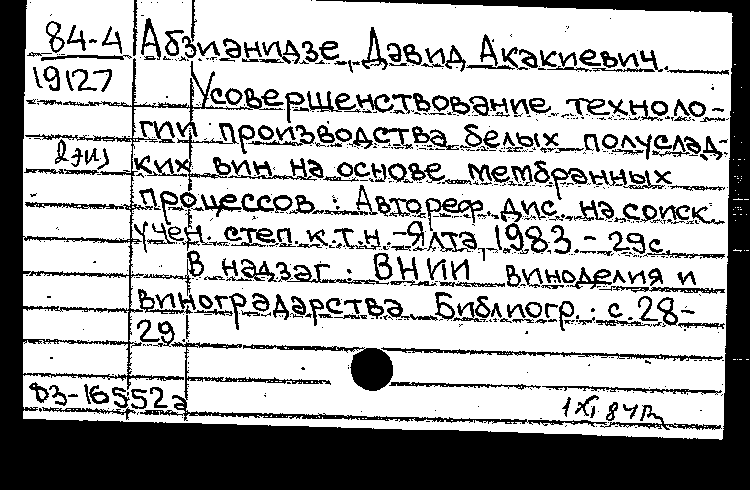 84-4 Абзианидзе, Давид Акакиевич.
19127
Усовершенствование техноло-
гии производства белых полуслад-
2 экз ких вин на основе мембранных
процессов : Автореф. дис. на соиск.
учен. степ. к.т.н. - Ялта, 1983. - 29 с.
В надзаг.: ВНИИ виноделия и
виноградарства. Библиогр.: с. 28-
29.
83-16552а